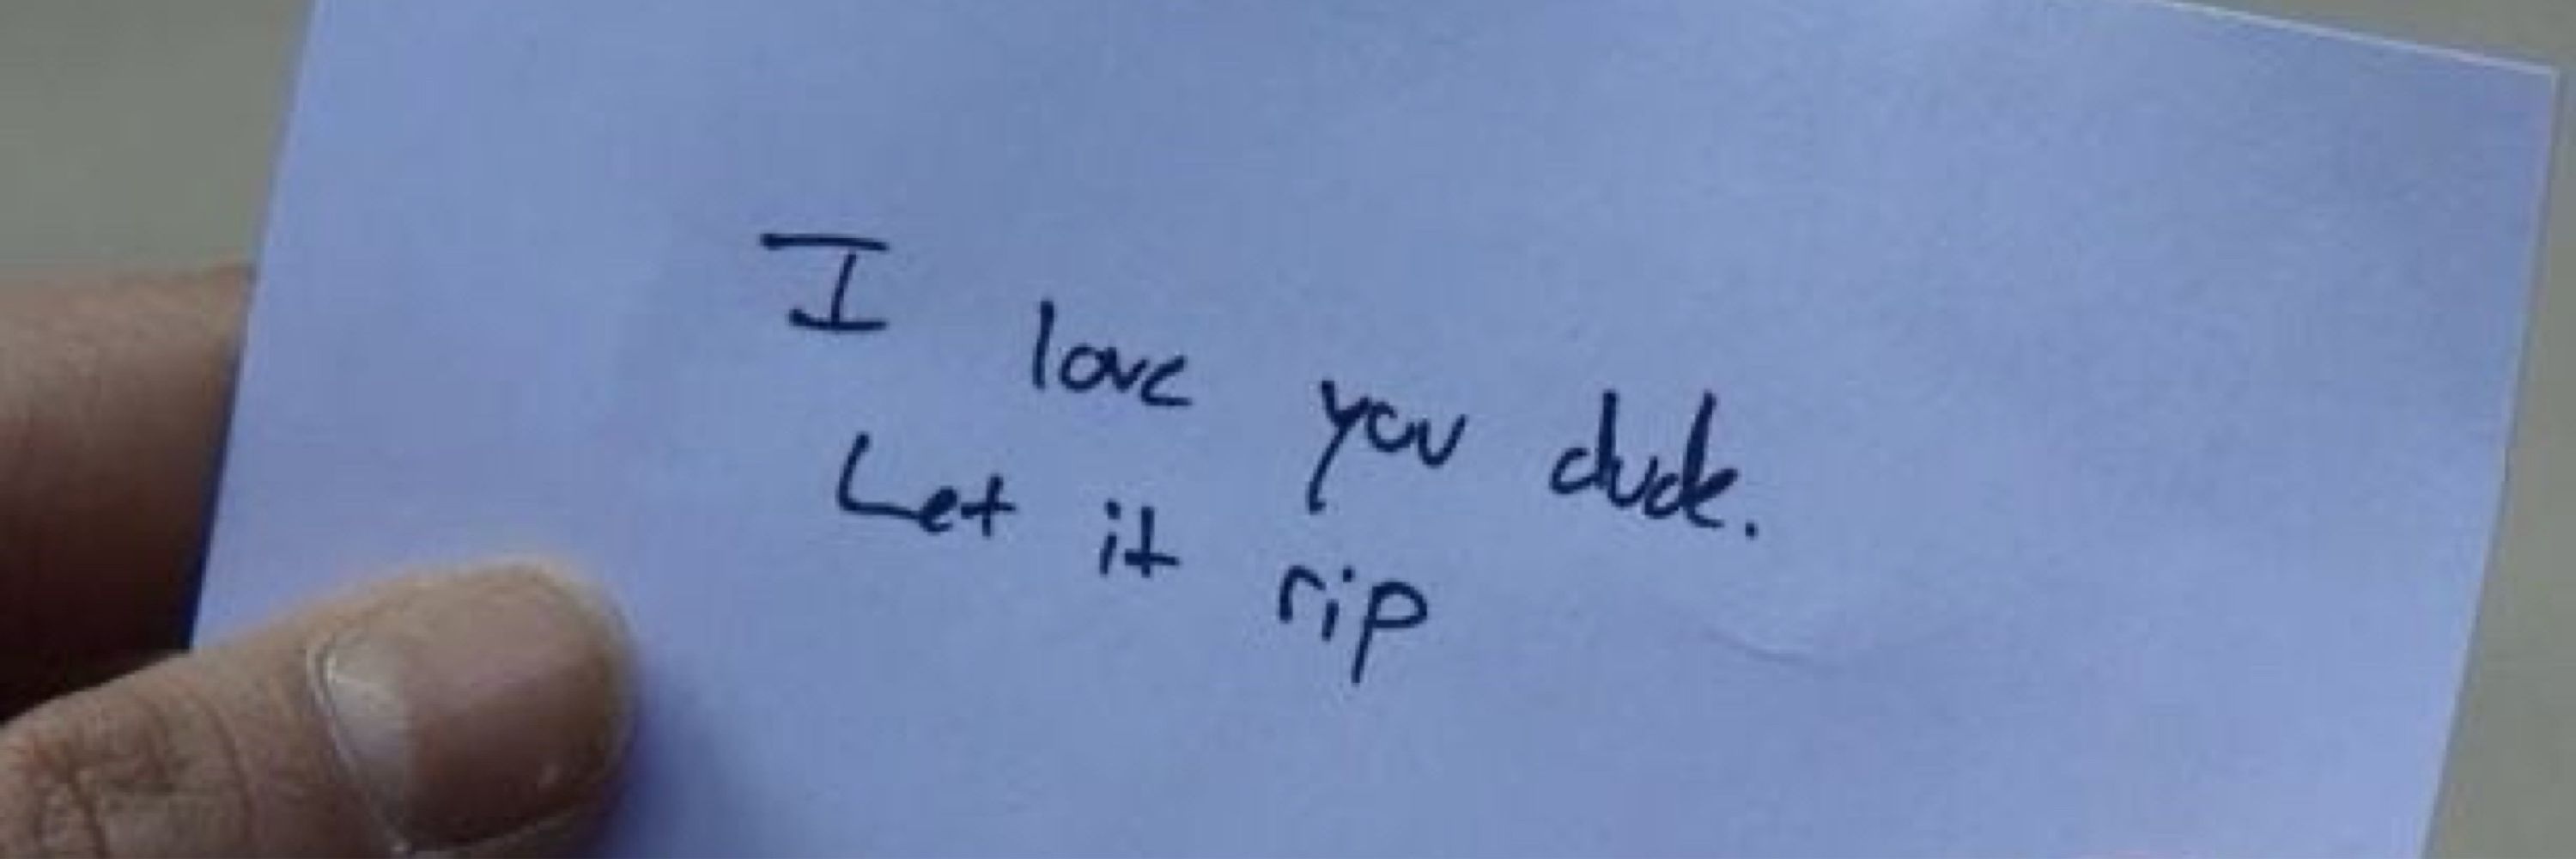 I love you dude.
Let it rip